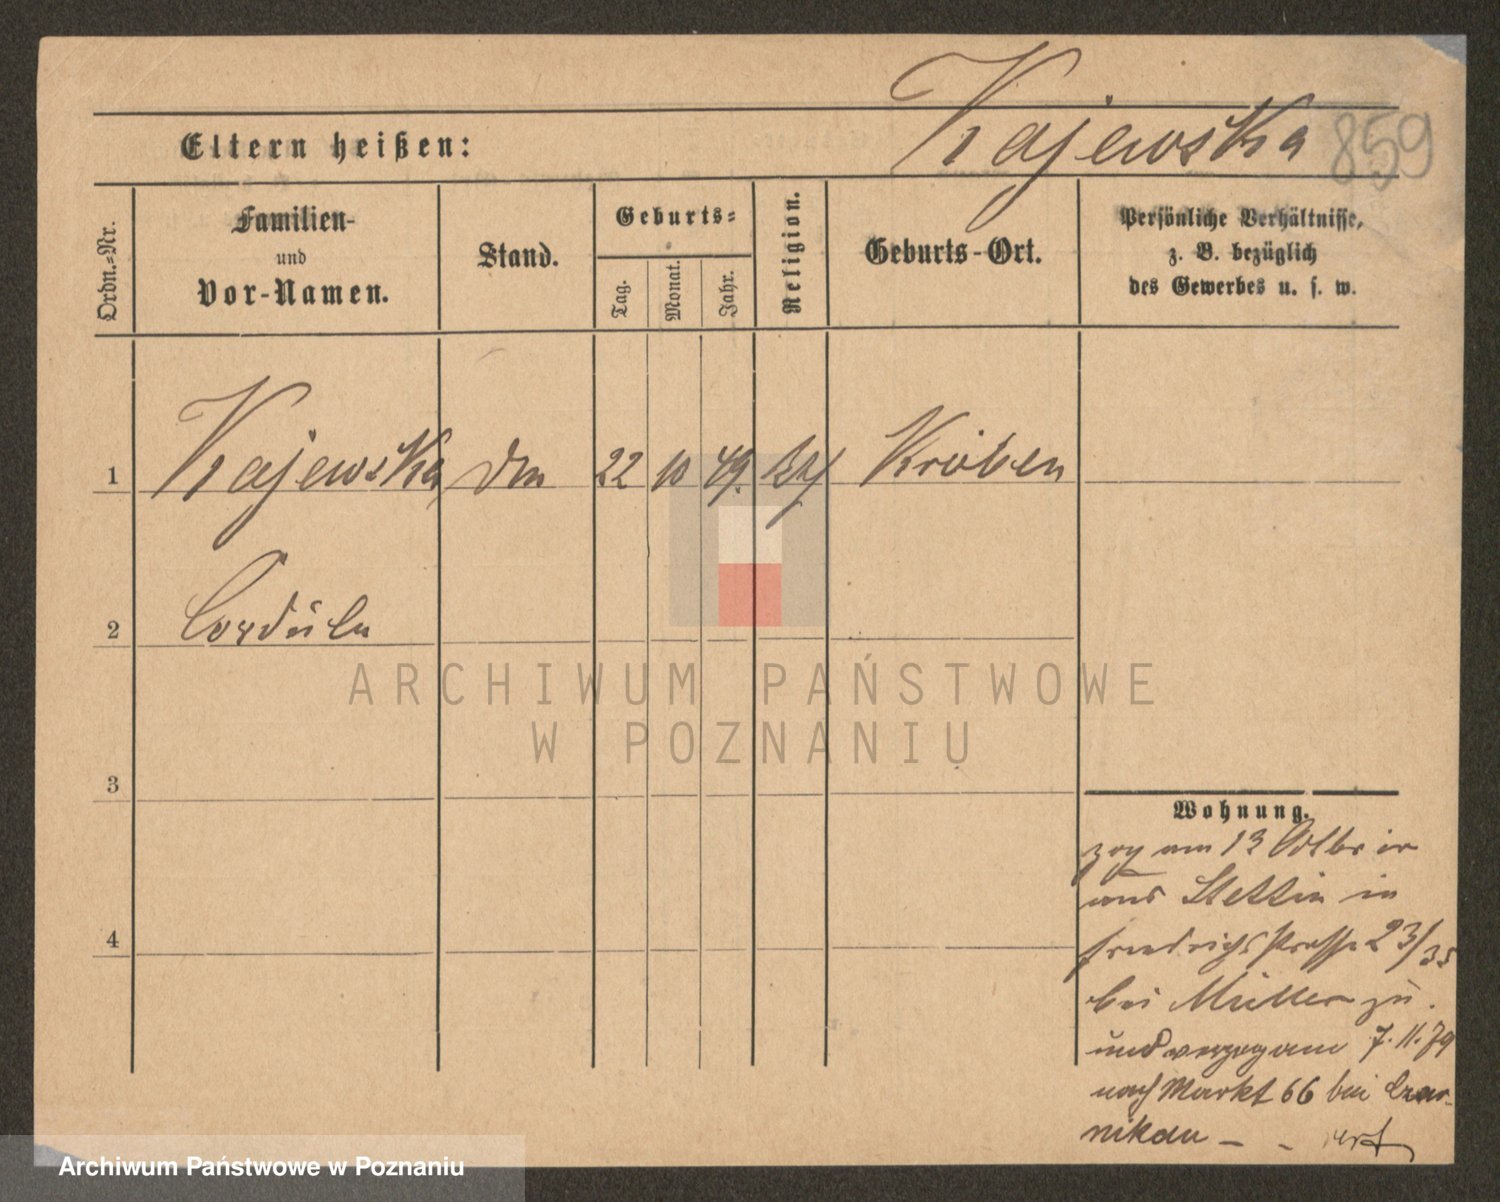 Kajewska 859
Eltern heißen:
Ordn.=Nr.
Familien-
und
Vor-Namen.
Stand.
Geburts=
Tag.
Monat.
Jahr.
Religion.
Geburts-Ort.
Persönliche Verhältnisse,
z. B. bezüglich
des Gewerbes u. s. w.
1 Kajewska 22 10 49. Kröben
2 Cordula
3
4
ARCHIWUM PAŃSTWOWE
W POZNANIU
Wohnung.
zog am 13 Octbr
aus Stettin in
Friedrichsstrasse 23/
bei Müller zu.
und verzog am 7.11.79
nach Markt 66 bei Czar-
nikau
Archiwum Państwowe w Poznaniu